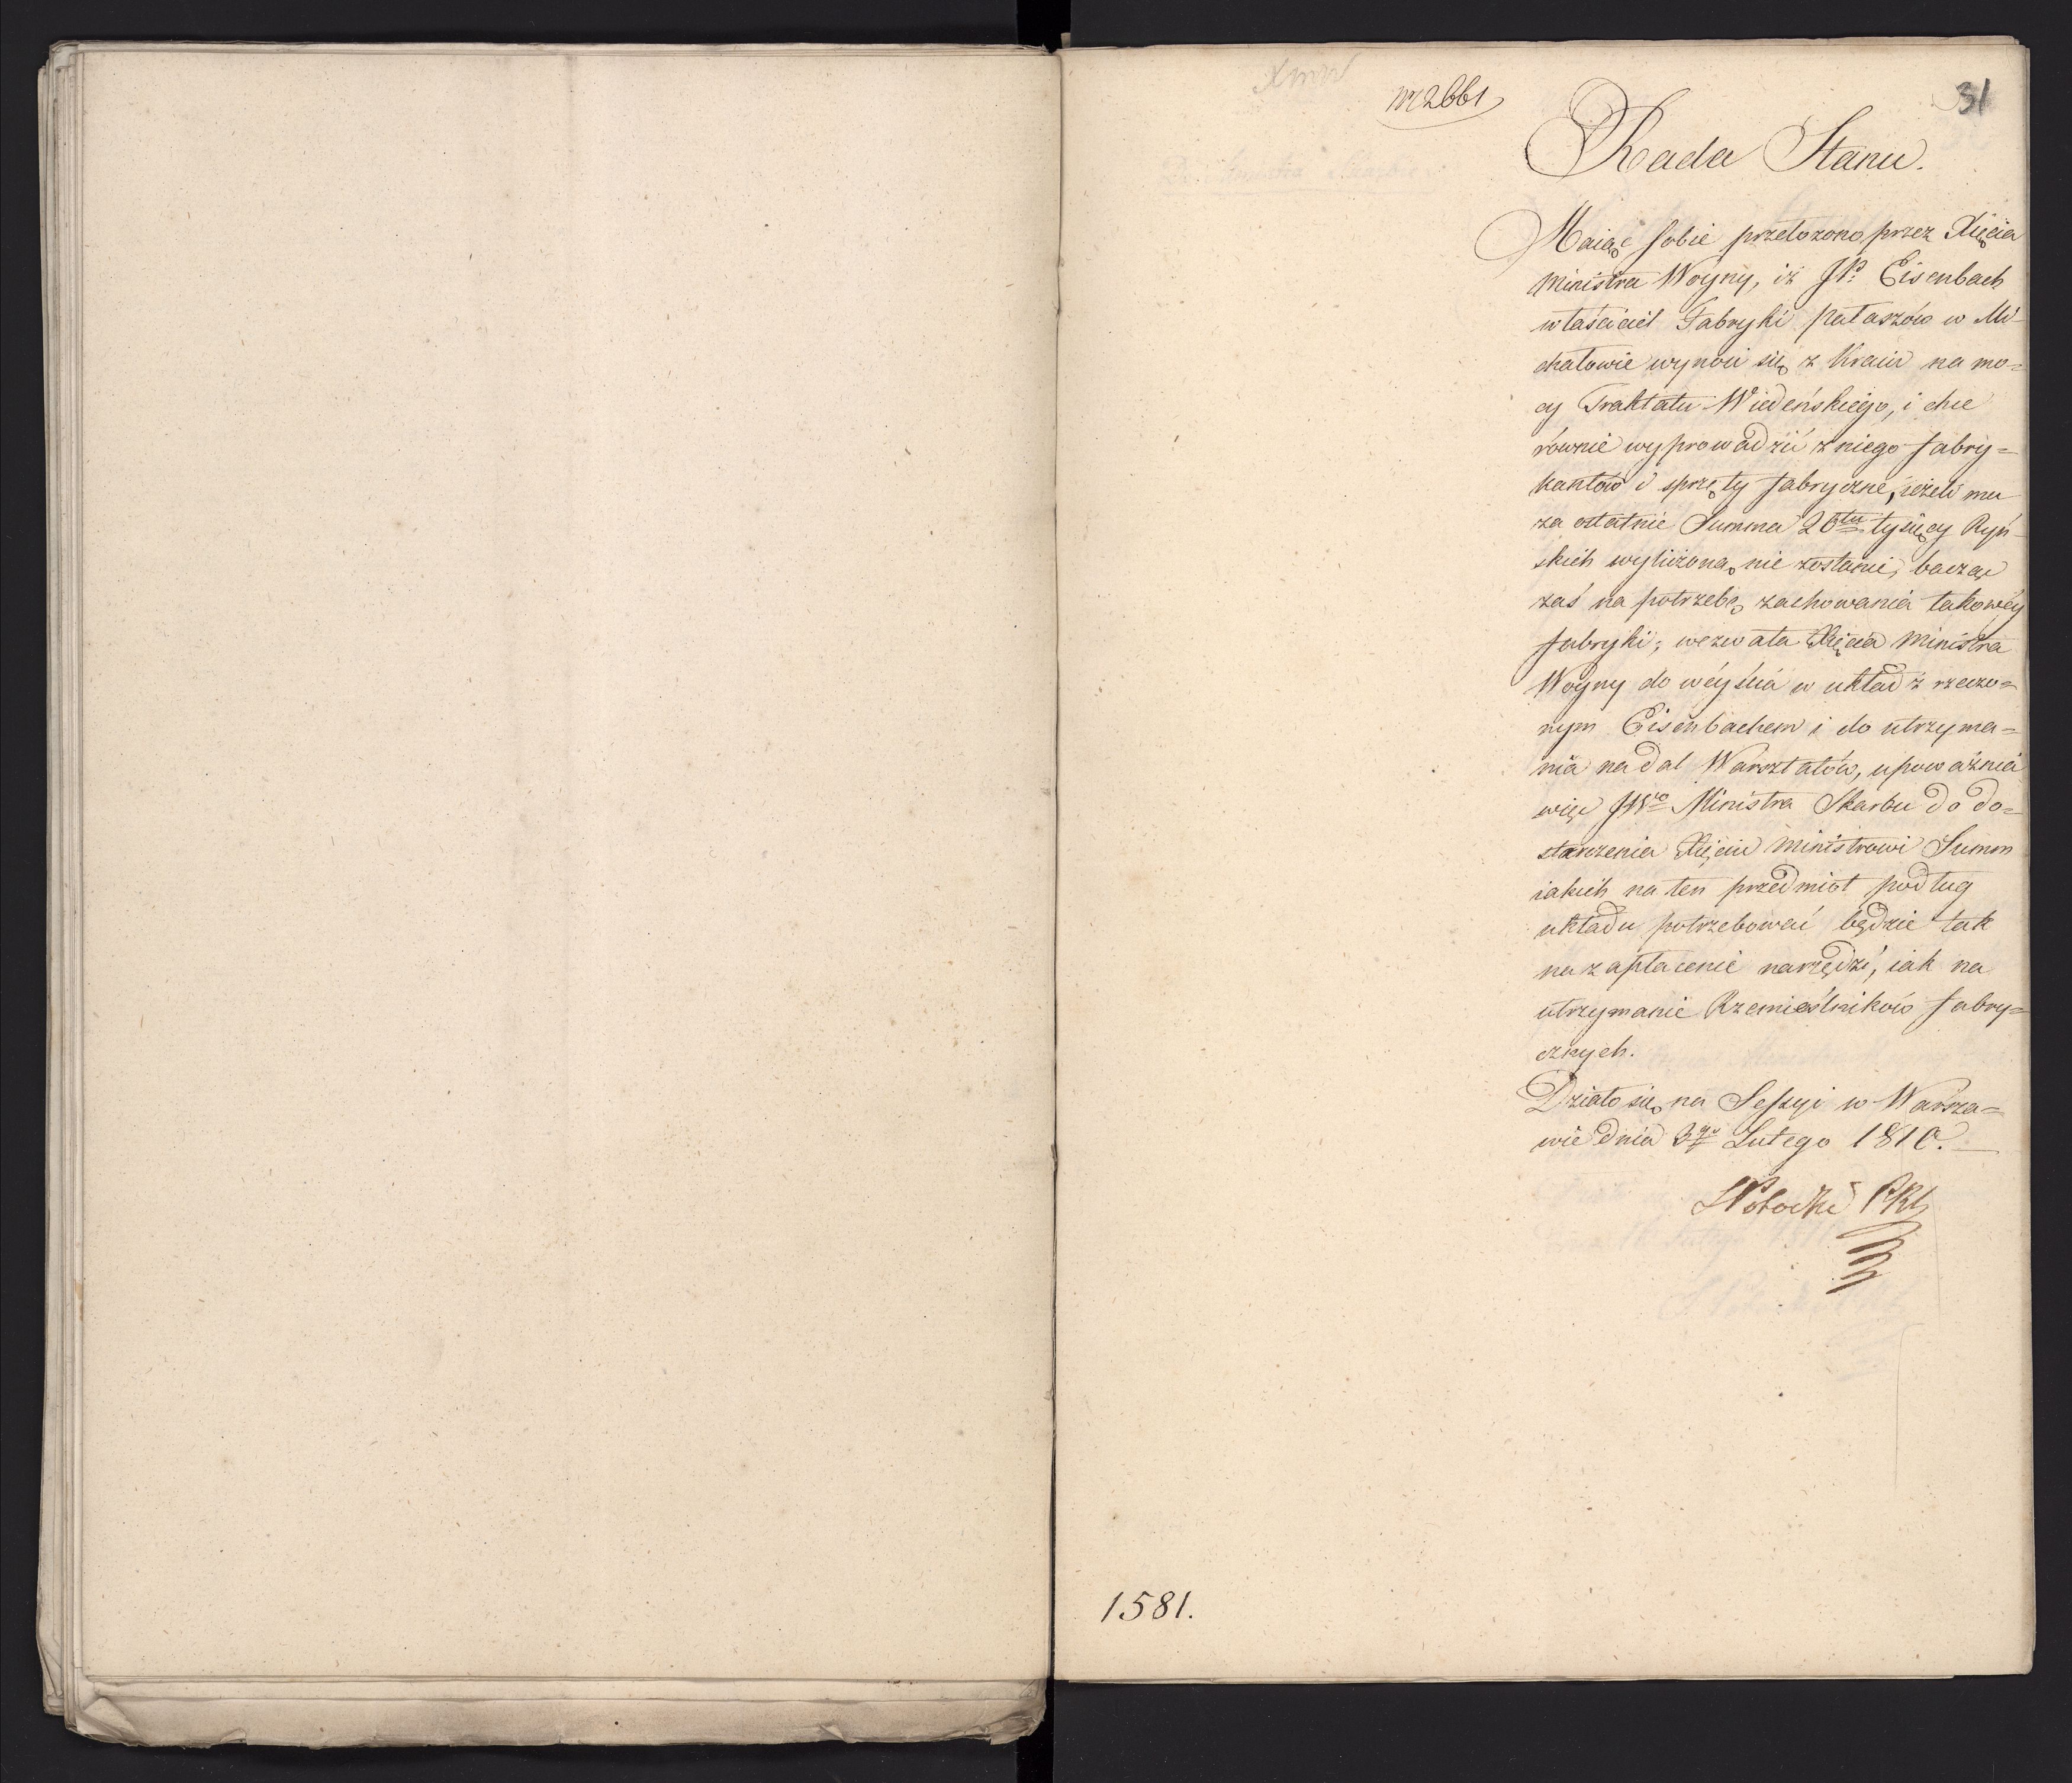 nr 2661
31
Rada Stanu.
Maiąc sobie przełożono przez Xięcia
Ministra Woyny, iż JP. Eisenbach
właściciel Fabryki pałaszów w Mi-
chałowie wynosi się z Kraiu na mo=
cy Traktatu Wiedeńskiego, i chce
równie wyprowadzić z niego fabry=
kantów i sprzęty fabryczne, ieżeli mu
za ostatnie Summa 26stu tysięcy Ryń-
skich wyliczoną nie zostanie, bacząc
zaś na potrzebę zachowania takowéy
fabryki; wezwała Xięcia Ministra
Woyny do wéyścia w układ z rzeczo=
nym Eisenbachem i do utrzyma=
nia nadal Warsztatów, upoważnia
więc JWo Ministra Skarbu do do=
starczenia Xięciu Ministrowi Summ
iakich na ten przedmiot podług
układu potrzebować będzie tak
na zapłacenie narzędzi, iak na
utrzymanie Rzemieślników fabry=
cznych.
Działo się na Sessyi w Warsza=
wie dnia 3go Lutego 1810.
SPotocki
1581.